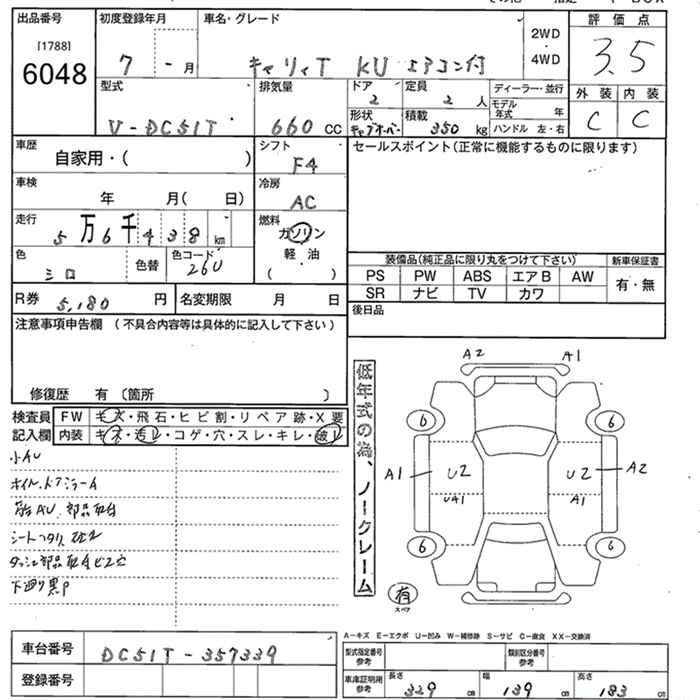 出品番号 初度登録年月 車名・グレード 評価点
[1788]
6048
7 - 月 キャリィT KU エアコン付 2WD ・ 4WD 3.5
型式 排気量 ドア 定員 ディーラー・並行 外装 内装
2 2 人 モデル年式 年
V-DC51T 660 CC 形状 積載 ハンドル 左・右 C C
キャブオーバー 350 kg
車歴 自家用・( ) シフト F4 セールスポイント(正常に機能するものに限ります)
車検 年 月( 日) 冷房 AC
走行 5万6千438km 燃料 ガソリン
軽・油
( )
色 シロ 色替 色コード 26U
装備品(純正品に限り丸をつけて下さい) 新車保証書
PS PW ABS エアB AW 有・無
SR ナビ TV カワ
R券 5,180 円 名変期限 月 日 後日品
注意事項申告欄 (不具合内容等は具体的に記入して下さい)
修復歴 有 〔箇所 〕
検査員 FW キズ・飛石・ヒビ割・リペア跡・X要
記入欄 内装 キズ・汚レ・コゲ・穴・スレ・キレ・破レ
小AU
下廻り黒P
低年式の為、ノークレーム
A2 A1
6 6
A1 U2 U2 A2
UA1 A1
6 6
有
スペア
A-キズ E-エクボ U-凹み W-補修跡 S-サビ C-腐食 XX-交換済
車台番号 DC51T-357339 型式指定番号 参考 類別区分番号 参考
審号番号 車庫証明用 参考 長さ 329 CM 幅 139 CM 高さ 183 CM